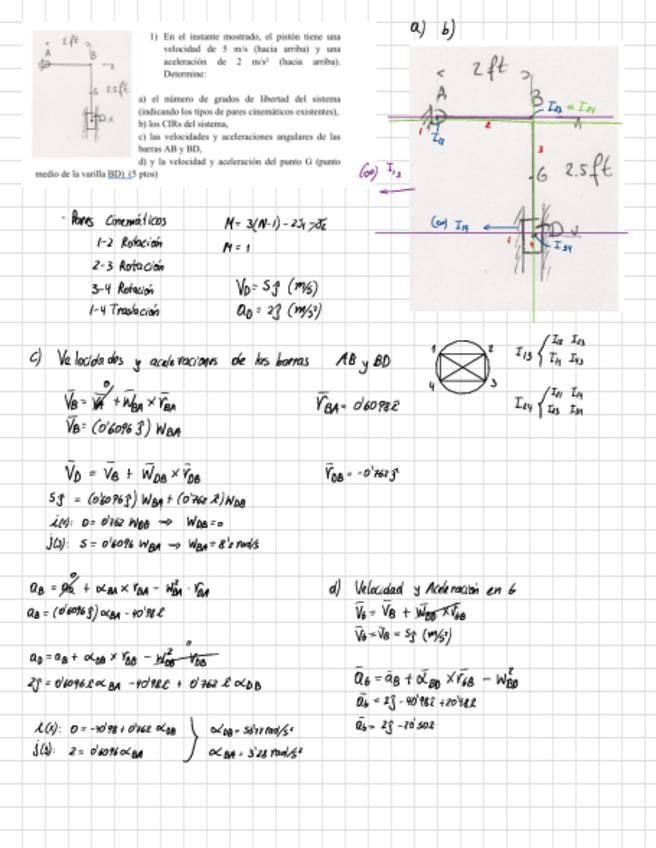 a) b)
1) En el instante mostrado, el pistón tiene una
velocidad de 5 m/s (hacia arriba) y una
aceleración de 2 m/s² (hacia arriba).
Determine:
a) el número de grados de libertad del sistema
(indicando los tipos de pares cinemáticos existentes),
b) los CIRs del sistema,
c) las velocidades y aceleraciones angulares de las
barras AB y BD,
d) y la velocidad y aceleración del punto G (punto
medio de la varilla BD) (5 ptos)
2ft
A
B
G
D
2ft
A
B I₂₃ = I₂₄
1
2
I₁₂
3
(∞) I₁₃
G 2.5ft
(∞) I₁₄
D
I₃₄
· Pares Cinemáticos
1-2 Rotación
2-3 Rotación
3-4 Rotación
1-4 Traslación
M = 3(N-1) - 2J₁ - J₂
M = 1
V_D = 5ĵ (m/s)
a_D = 2ĵ (m/s²)
c) Velocidades y aceleraciones de las barras AB y BD
V̄_B = V̄_A + W̄_BA × r̄_BA
r̄_BA = 0'6096î
V̄_B = (0'6096ĵ) W_BA
1 2
4 3
I₁₃ { I₁₂ I₂₃
I₁₄ I₄₃
I₂₄ { I₂₁ I₁₄
I₂₃ I₃₄
V̄_D = V̄_B + W̄_DB × r̄_DB
r̄_DB = -0'762ĵ
5ĵ = (0'6096ĵ) W_BA + (0'762 î) W_DB
i(x): 0 = 0'762 W_DB → W_DB = 0
j(y): 5 = 0'6096 W_BA → W_BA = 8'2 rad/s
a_B = a_A + α_BA × r_BA - W²_BA · r_BA
a_B = (0'6096ĵ) α_BA - 40'98î
a_D = a_B + α_DB × r_DB - W²_DB r_DB
2ĵ = 0'6096î α_BA - 40'98î + 0'762 î α_DB
i(x): 0 = -40'98 + 0'762 α_DB
j(y): 2 = 0'6096 α_BA
α_DB = 53'77 rad/s²
α_BA = 3'28 rad/s²
d) Velocidad y Aceleración en G
V̄_G = V̄_B + W̄_BD × r̄_GB
V̄_G = V̄_B = 5ĵ (m/s)
ā_G = ā_B + ᾱ_BD × r̄_GB - W²_BD
ā_G = 2ĵ - 40'98î + 20'48î
ā_G = 2ĵ - 20'50î